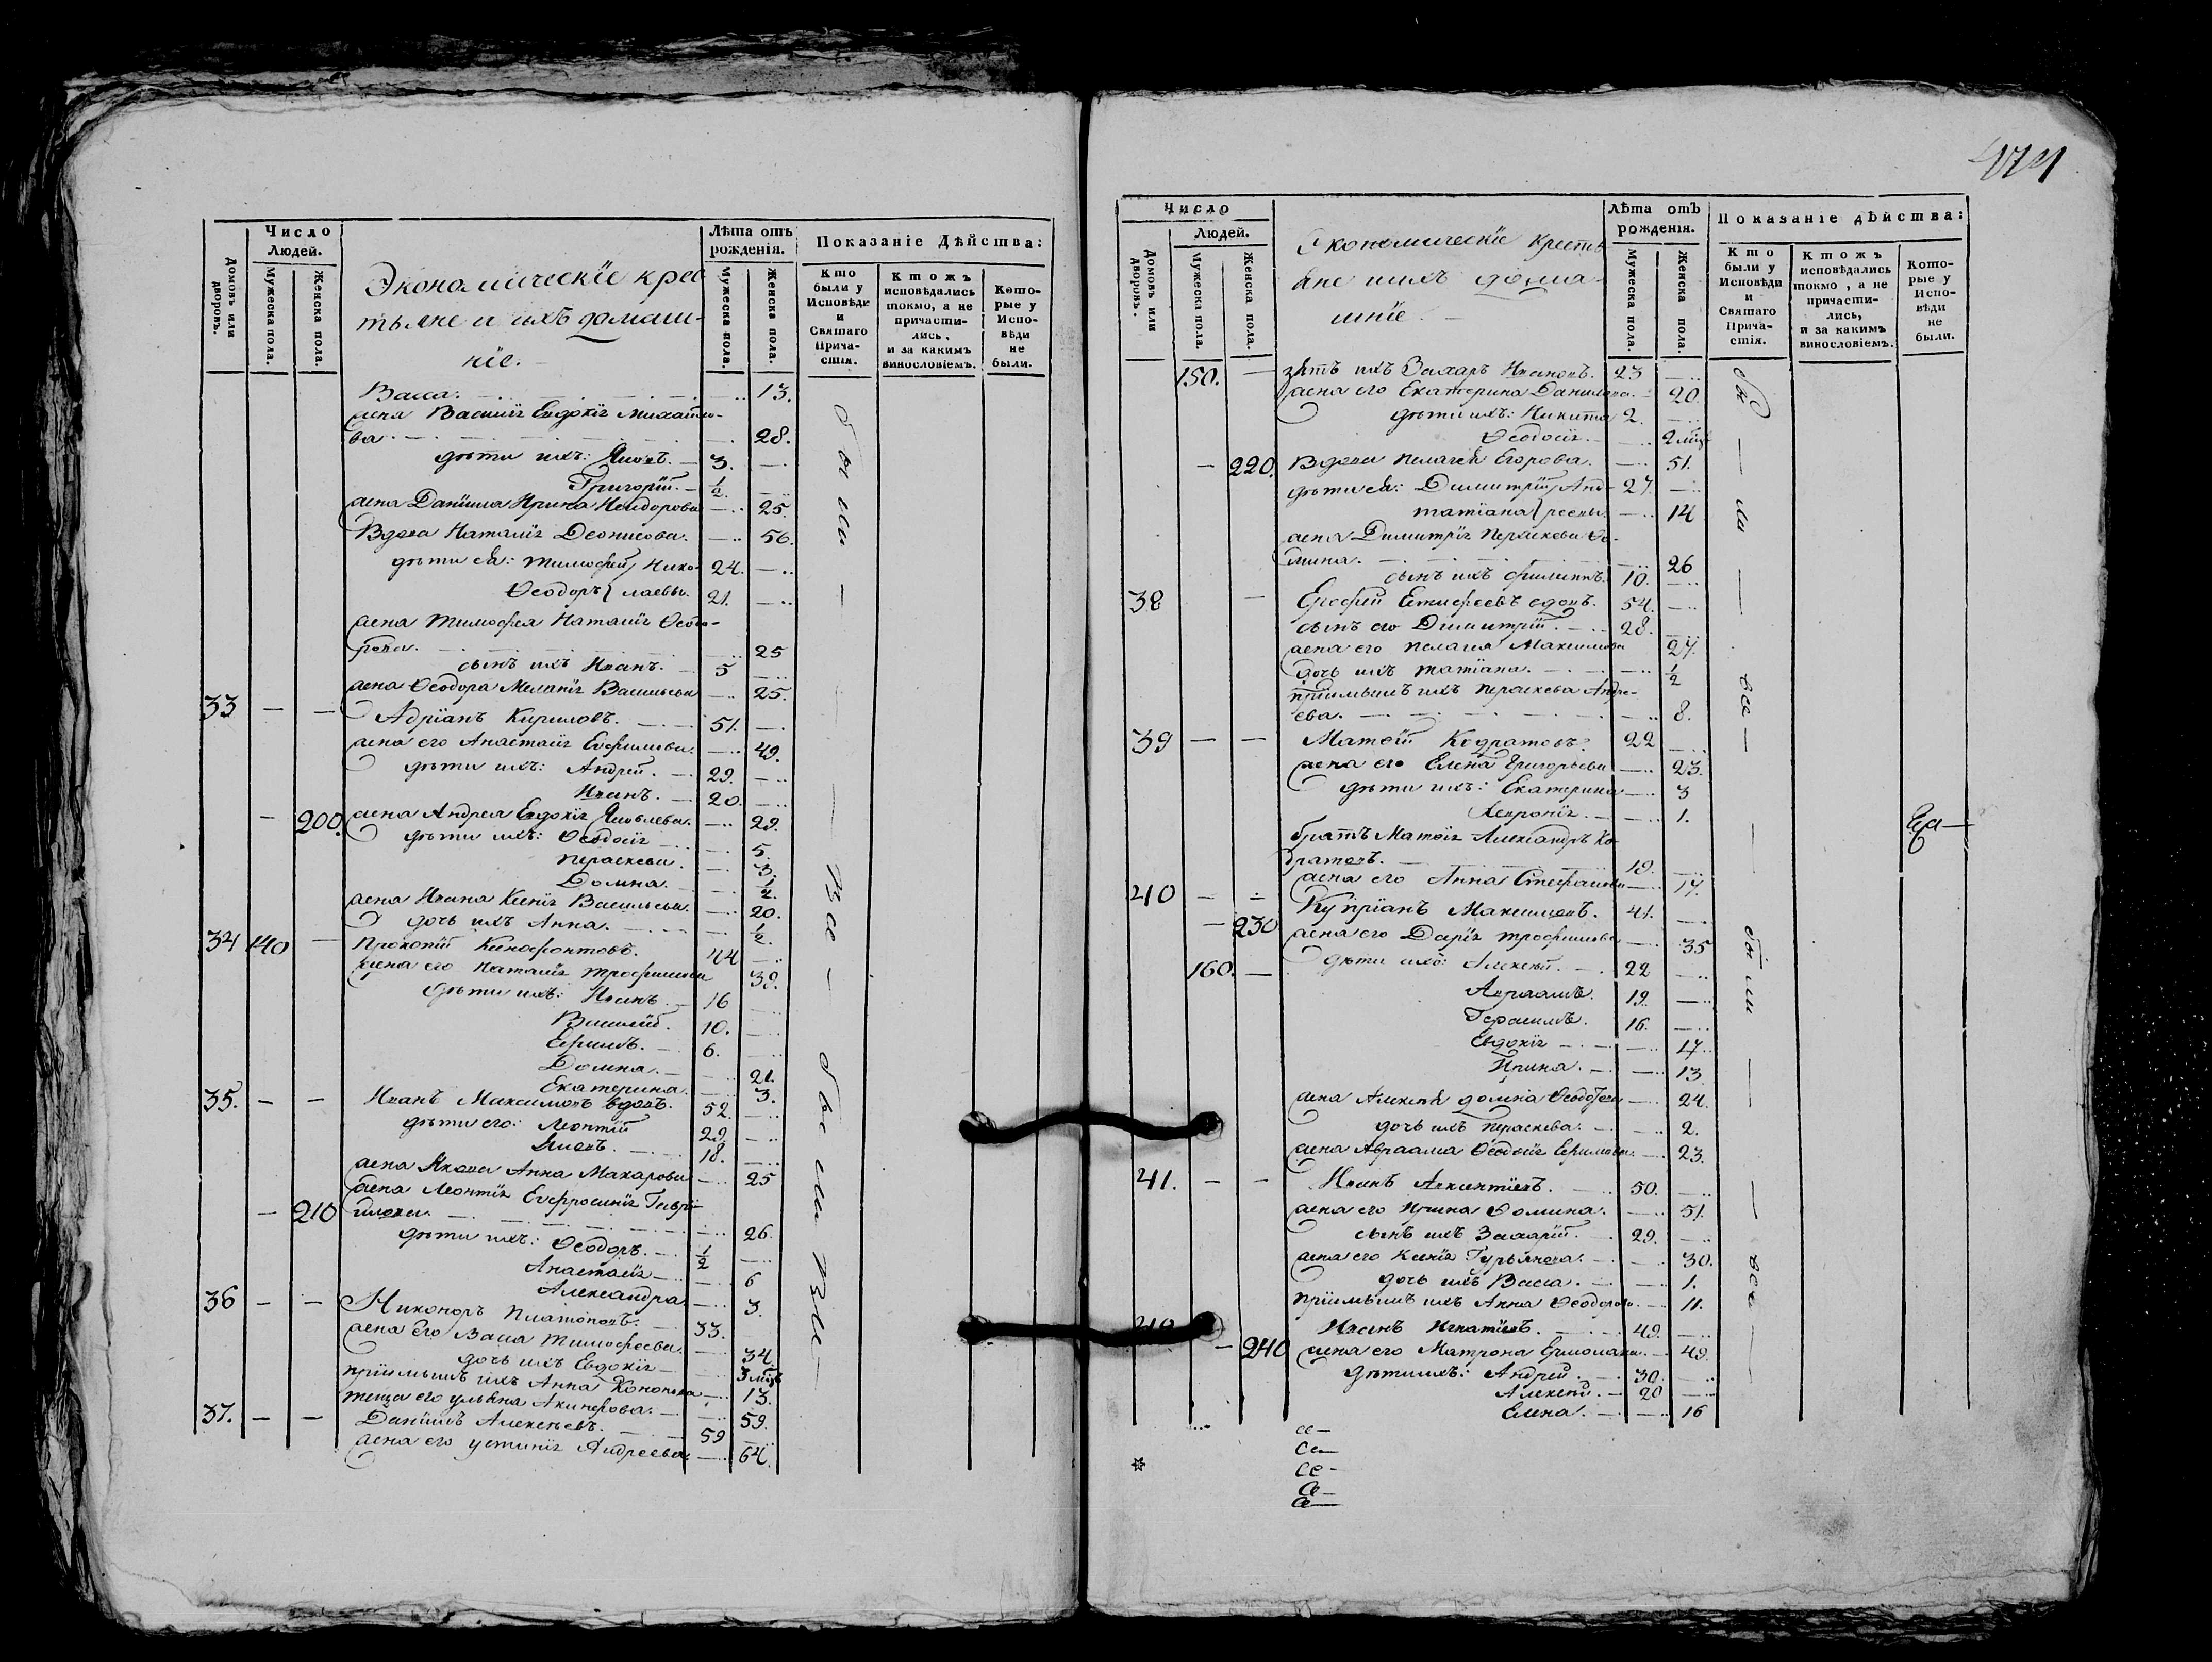 474
Число
Людей.
Домовъ или дворовъ.
Мужеска пола.
Женска пола.
Экономическіе крес
тьяне и ихъ домаш-
ніе.
Лѣта отъ
рожденія.
Мужеска пола.
Женска пола.
Показаніе Дѣйства:
Кто были у Исповѣди и Святаго Прича-стія.
Ктожъ исповѣдались токмо, а не причасти-лись, и за какимъ винословіемъ.
Кото-рые у Испо-вѣди не были.
Васса. 13.
жена Василія Евдокія Михайло-
ва. 28.
дѣти ихъ: Яковъ. 3.
Григорій. 1/2.
жена Даніила Ирина Исидорова 25.
Вдова Наталія Деонисова. 56.
дѣти ея: Тимофей Нико- 24.
Ѳеодоръ лаевы. 21.
жена Тимофея Наталія Ѳеодо-
рова. 25
сынъ ихъ Иванъ. 5
жена Ѳеодора Меланія Васильева 25.
33 Адріанъ Кириловъ. 51.
жена его Анастасія Евфимова. 49.
дѣти ихъ: Андрей. 29.
Иванъ. 20.
200. жена Андрея Евдокія Яковлева. 29.
дѣти ихъ: Ѳеодосія 5.
Параскева. 3.
Домна. 1/2.
жена Ивана Ксенія Васильева. 20.
дочь ихъ Анна. 1/2.
34 140 Прокопій Ксенофонтовъ. 44
жена его Наталія Трофимова 39.
дѣти ихъ: Иванъ. 16
Василій. 10.
Ефимъ. 6.
Домна. 21.
Екатерина. 3.
35. Иванъ Максимовъ вдовъ. 52.
дѣти его: Леонтій 29.
Яковъ. 18.
жена Якова Анна Макарова 25
жена Леонтія Евфросинія Гаврі-
210 илова. 26.
дѣти ихъ: Ѳеодоръ. 1/2
Анастасія 6
Александра. 3.
36 Никоноръ Платоновъ. 33.
жена его Васса Тимофеева. 34.
дочь ихъ Евдокія 3 мцъ
пріимышъ ихъ Анна Кононова 13.
теща его Ульяна Акинфова. 59.
37. Даніилъ Алексѣевъ. 59
жена его Устинія Андреева. 64.
были — все — были все —
Число
Людей.
Домовъ или дворовъ.
Мужеска пола.
Женска пола.
Экономическіе кресть
яне ихъ дома-
шніе.
Лѣта отъ
рожденія.
Мужеска пола.
Женска пола.
Показаніе дѣйства:
Кто были у Исповѣди и Святаго Прича-стія.
Ктожъ исповѣдались токмо, а не причасти-лись, и за какимъ винословіемъ.
Кото-рые у Испо-вѣди не были.
150. зять ихъ Захаръ Ивановъ. 23
жена его Екатерина Данилова. 20.
дѣти ихъ: Никита 2.
Ѳеодосія. 2 мцъ
220. Вдова Пелагея Егорова. 51.
дѣти ея: Димитрій Анд- 27.
Татіана реевы. 14
жена Димитрія Параскева Ѳо-
мина. 26
сынъ ихъ Филиппъ. 10.
38 Ерофей Елисеевъ вдовъ. 54.
сынъ его Димитрій. 28.
жена его Пелагея Максимова 27.
дочь ихъ Татіана. 1/2
пріимышъ ихъ Параскева Андре-
ева. 8.
39 Матѳей Кодратовъ. 22
жена его Елена Григорьева 23.
дѣти ихъ: Екатерина 3
Февронія. 1.
братъ Матѳія Александръ Ко
дратовъ. 19.
жена его Анна Стефанова 17.
40 Купріанъ Максимовъ. 41.
230 жена его Дарія Трофимова 35
160. дѣти ихъ: Алексѣй. 22
Авраамъ. 19.
Герасимъ. 16.
Евдокія 17.
Ирина. 13.
жена Алексѣя Домна Ѳеодотова 24.
дочь ихъ Параскева. 2.
жена Авраама Ѳеодосія Ефимова. 23.
41. Иванъ Авксентіевъ. 50.
жена его Ирина Ѳомина. 51.
сынъ ихъ Захарій. 29.
жена его Ксенія Гурьянова. 30.
дочь ихъ Васса. 1.
пріимышъ ихъ Анна Ѳеодорова. 11.
Иванъ Игнатіевъ. 49.
240 жена его Матрона Ермолаева. 49.
дѣти ихъ: Андрей. 30.
Алексѣй. 20
Елена. 16
бы — ли — все — были — все —